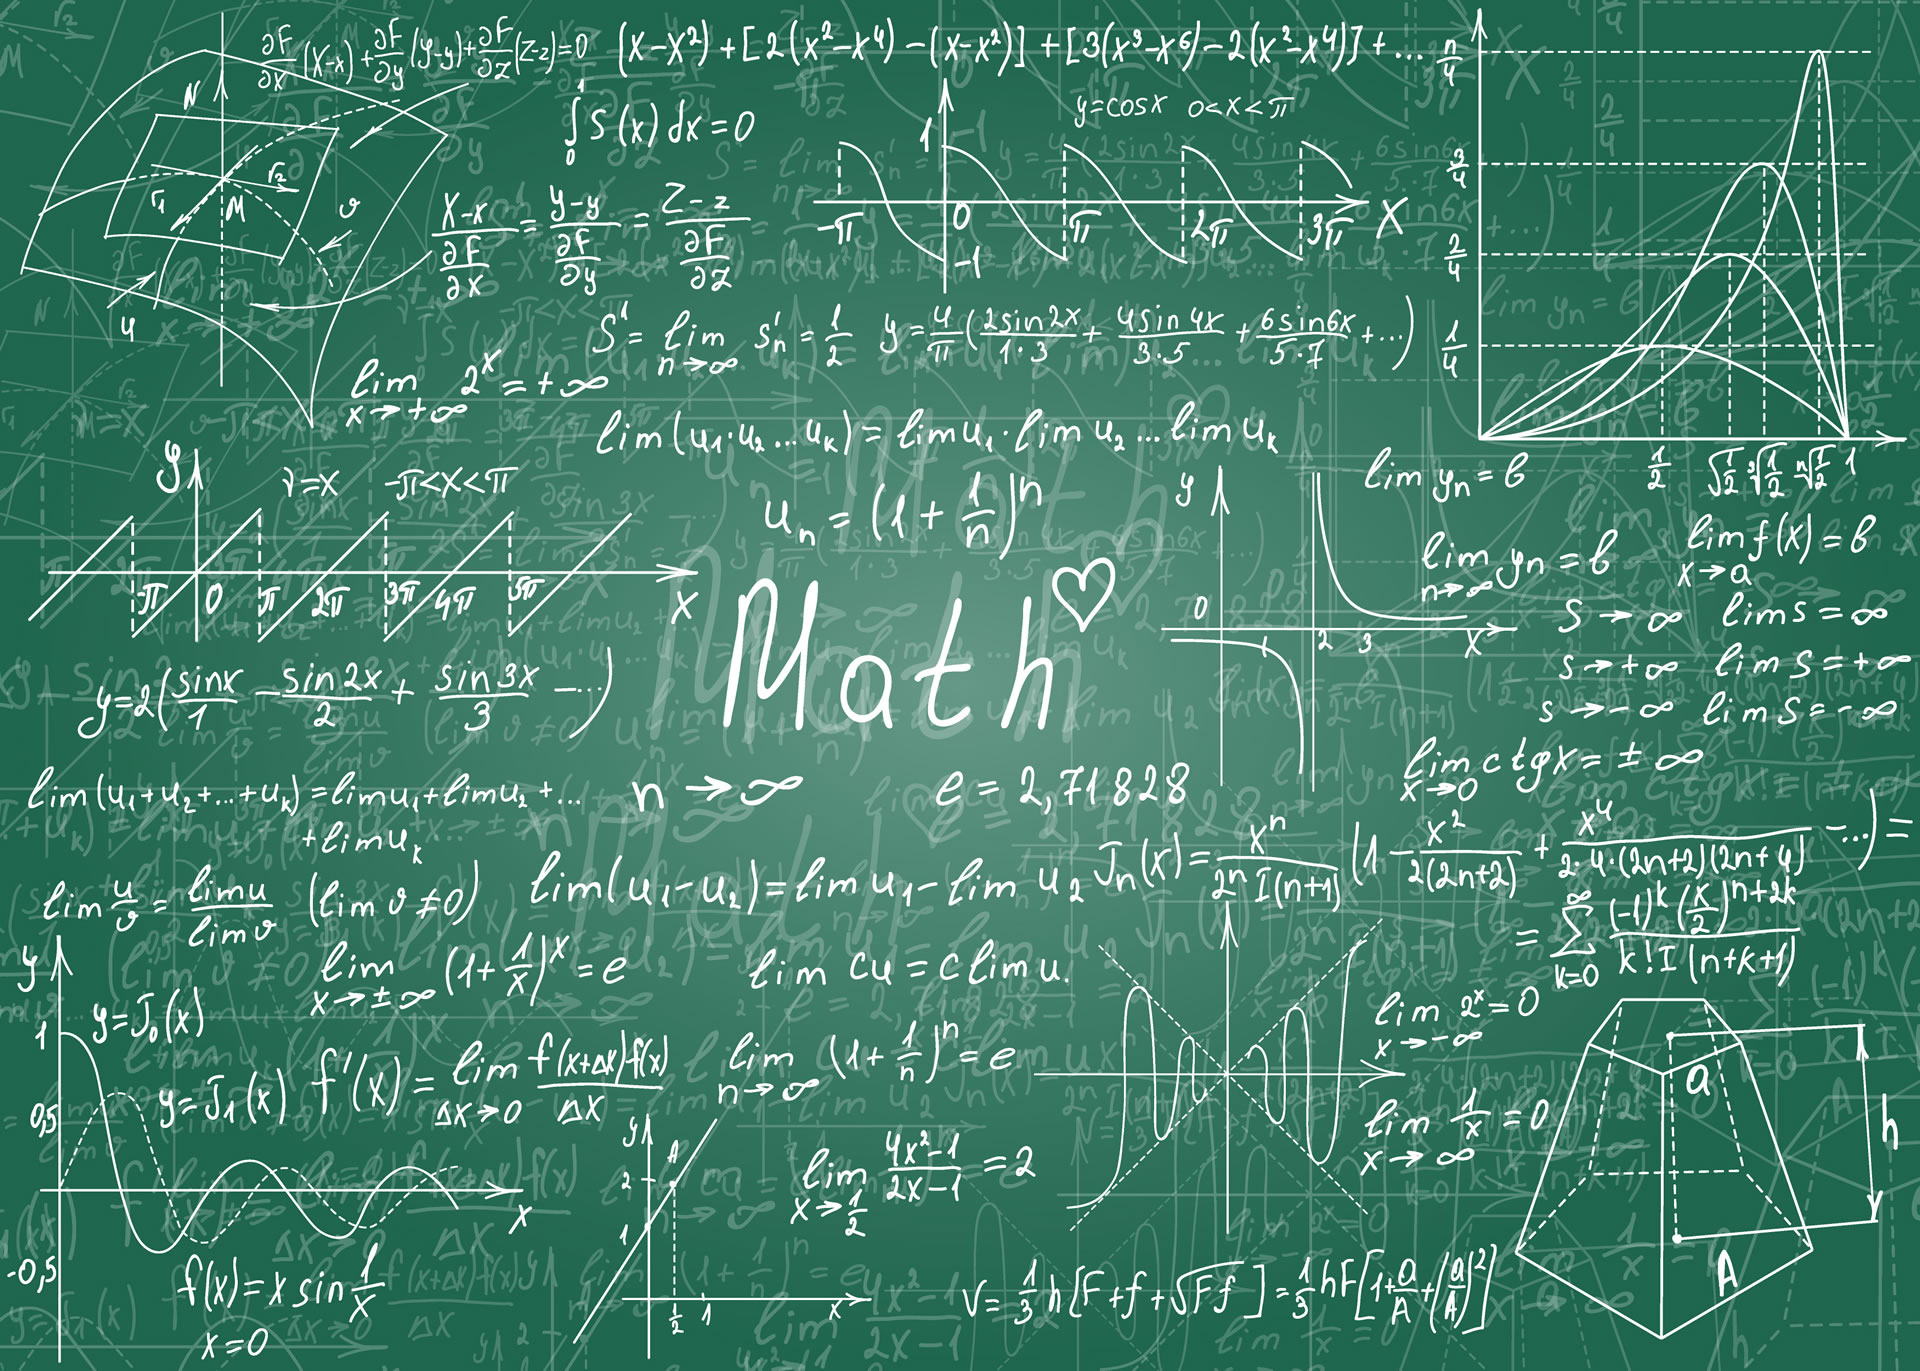 ∂F/∂x (X-x) + ∂F/∂y (Y-y) + ∂F/∂z (Z-z) = 0
(x-x²) + [2(x²-x⁴) - (x-x²)] + [3(x³-x⁶) - 2(x²-x⁴)] + ...
N
r₁ r₂
M
u
∫₀¹ S(x) dx = 0
(X-x)/(∂F/∂x) = (Y-y)/(∂F/∂y) = (Z-z)/(∂F/∂z)
y=cosx 0<x<π
1
-π 0 π 2π 3π X
-1
n/4
3/4
2/4
1/4
1/2 √1/2 ³√1/2 ⁿ√1/2 1
S' = lim n→∞ s'n = 1/2
y = 4/π (2sin2x/1·3 + 4sin4x/3·5 + 6sin6x/5·7 + ...)
lim x→+∞ 2ˣ = +∞
lim(u₁·u₂...uk) = limu₁·limu₂...limuk
uₙ = (1 + 1/n)ⁿ
lim yn = b
y
-π<x<π
-π 0 π 2π 3π 4π 5π
x
Math
y
0 1 2 3 x
lim n→∞ yn = b
lim x→a f(x) = b
s→∞ lim s = ∞
s→+∞ lim s = +∞
s→-∞ lim s = -∞
y=2(sinx/1 - sin2x/2 + sin3x/3 - ...)
lim x→0 ctgx = ±∞
lim(u₁+u₂+...+uk) = limu₁+limu₂+...
+limuk
n→∞
e = 2,71828
Jn(x) = xⁿ/2ⁿI(n+1) (1· x²/2(2n+2) + x⁴/2·4·(2n+2)(2n+4) - ...) =
= Σ k=0 ∞ (-1)ᵏ(x/2)ⁿ⁺²ᵏ/k!I(n+k+1)
lim u/v = lim u/lim v (lim v≠0)
lim(u₁-u₂) = lim u₁ - lim u₂
lim x→±∞ (1+1/x)ˣ = e
lim cu = c lim u.
y
1
0,5
-0,5
x
y=J₀(x)
y=J₁(x)
f'(x) = lim Δx→0 f(x+Δx)-f(x)/Δx
lim n→∞ (1+1/n)ⁿ = e
lim x→-∞ 2ˣ = 0
lim x→∞ 1/x = 0
a
h
A
y
A
2
1
1/2 1 x
lim x→1/2 4x²-1/2x-1 = 2
f(x) = x sin 1/x
x=0
V = 1/3 h[F+f+√Ff] = 1/3 hF[1+a/A+(a/A)²]